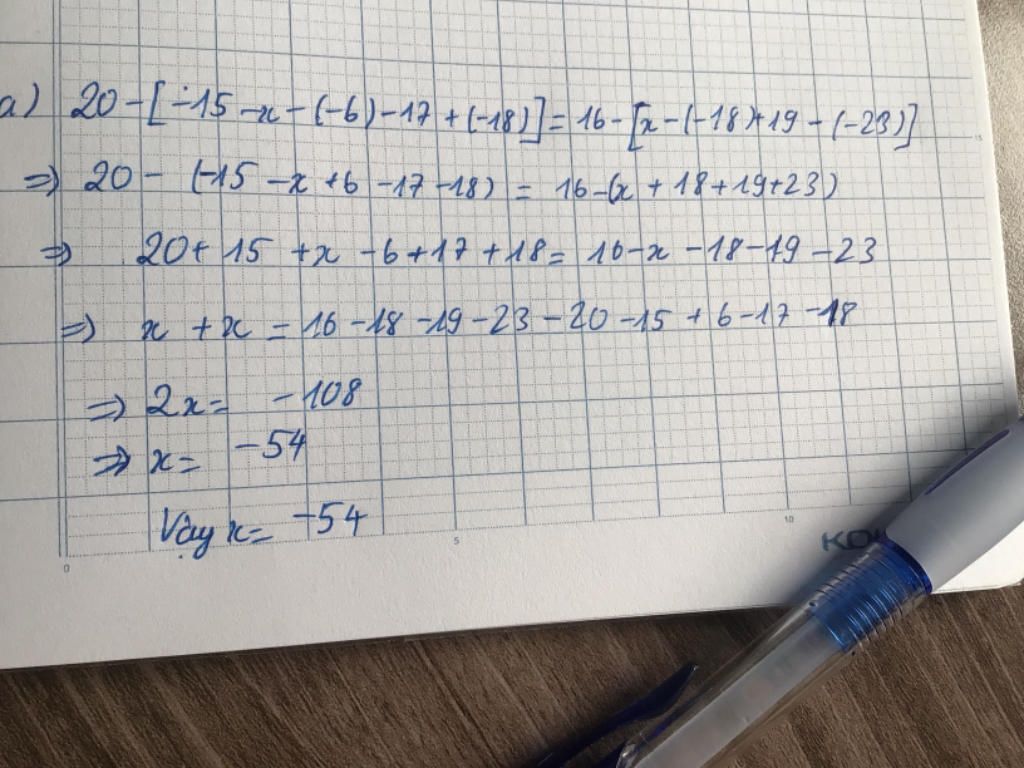 a) 20 - [-15 - x - (-6) - 17 + (-18)] = 16 - [x - (-18) + 19 - (-23)]
=> 20 - (-15 - x + 6 - 17 - 18) = 16 - (x + 18 + 19 + 23)
=> 20 + 15 + x - 6 + 17 + 18 = 16 - x - 18 - 19 - 23
=> x + x = 16 - 18 - 19 - 23 - 20 - 15 + 6 - 17 - 18
=> 2x = -108
=> x = -54
Vậy x = -54
0 5 10 15